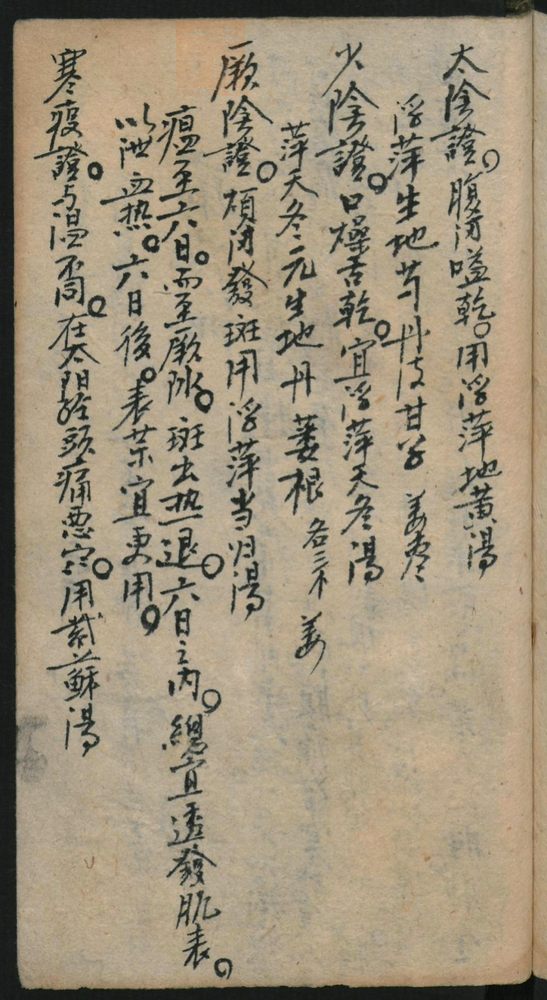 太陰證。腹滿嗌乾。用浮萍地黃湯
浮萍生地芍丹皮甘草 姜枣
少陰證。口燥舌乾。宜浮萍天冬湯
萍天冬元生地丹蔞根 各三不 姜
厥陰證。煩滿發斑用浮萍当归湯
瘟至六日。而至厥陰。斑出热退。六日之内。總宜透發肌表。
以泄血热。六日後。表药宜更用。
寒疫證与温不同。在太阳經頭痛惡寒。用紫蘇湯